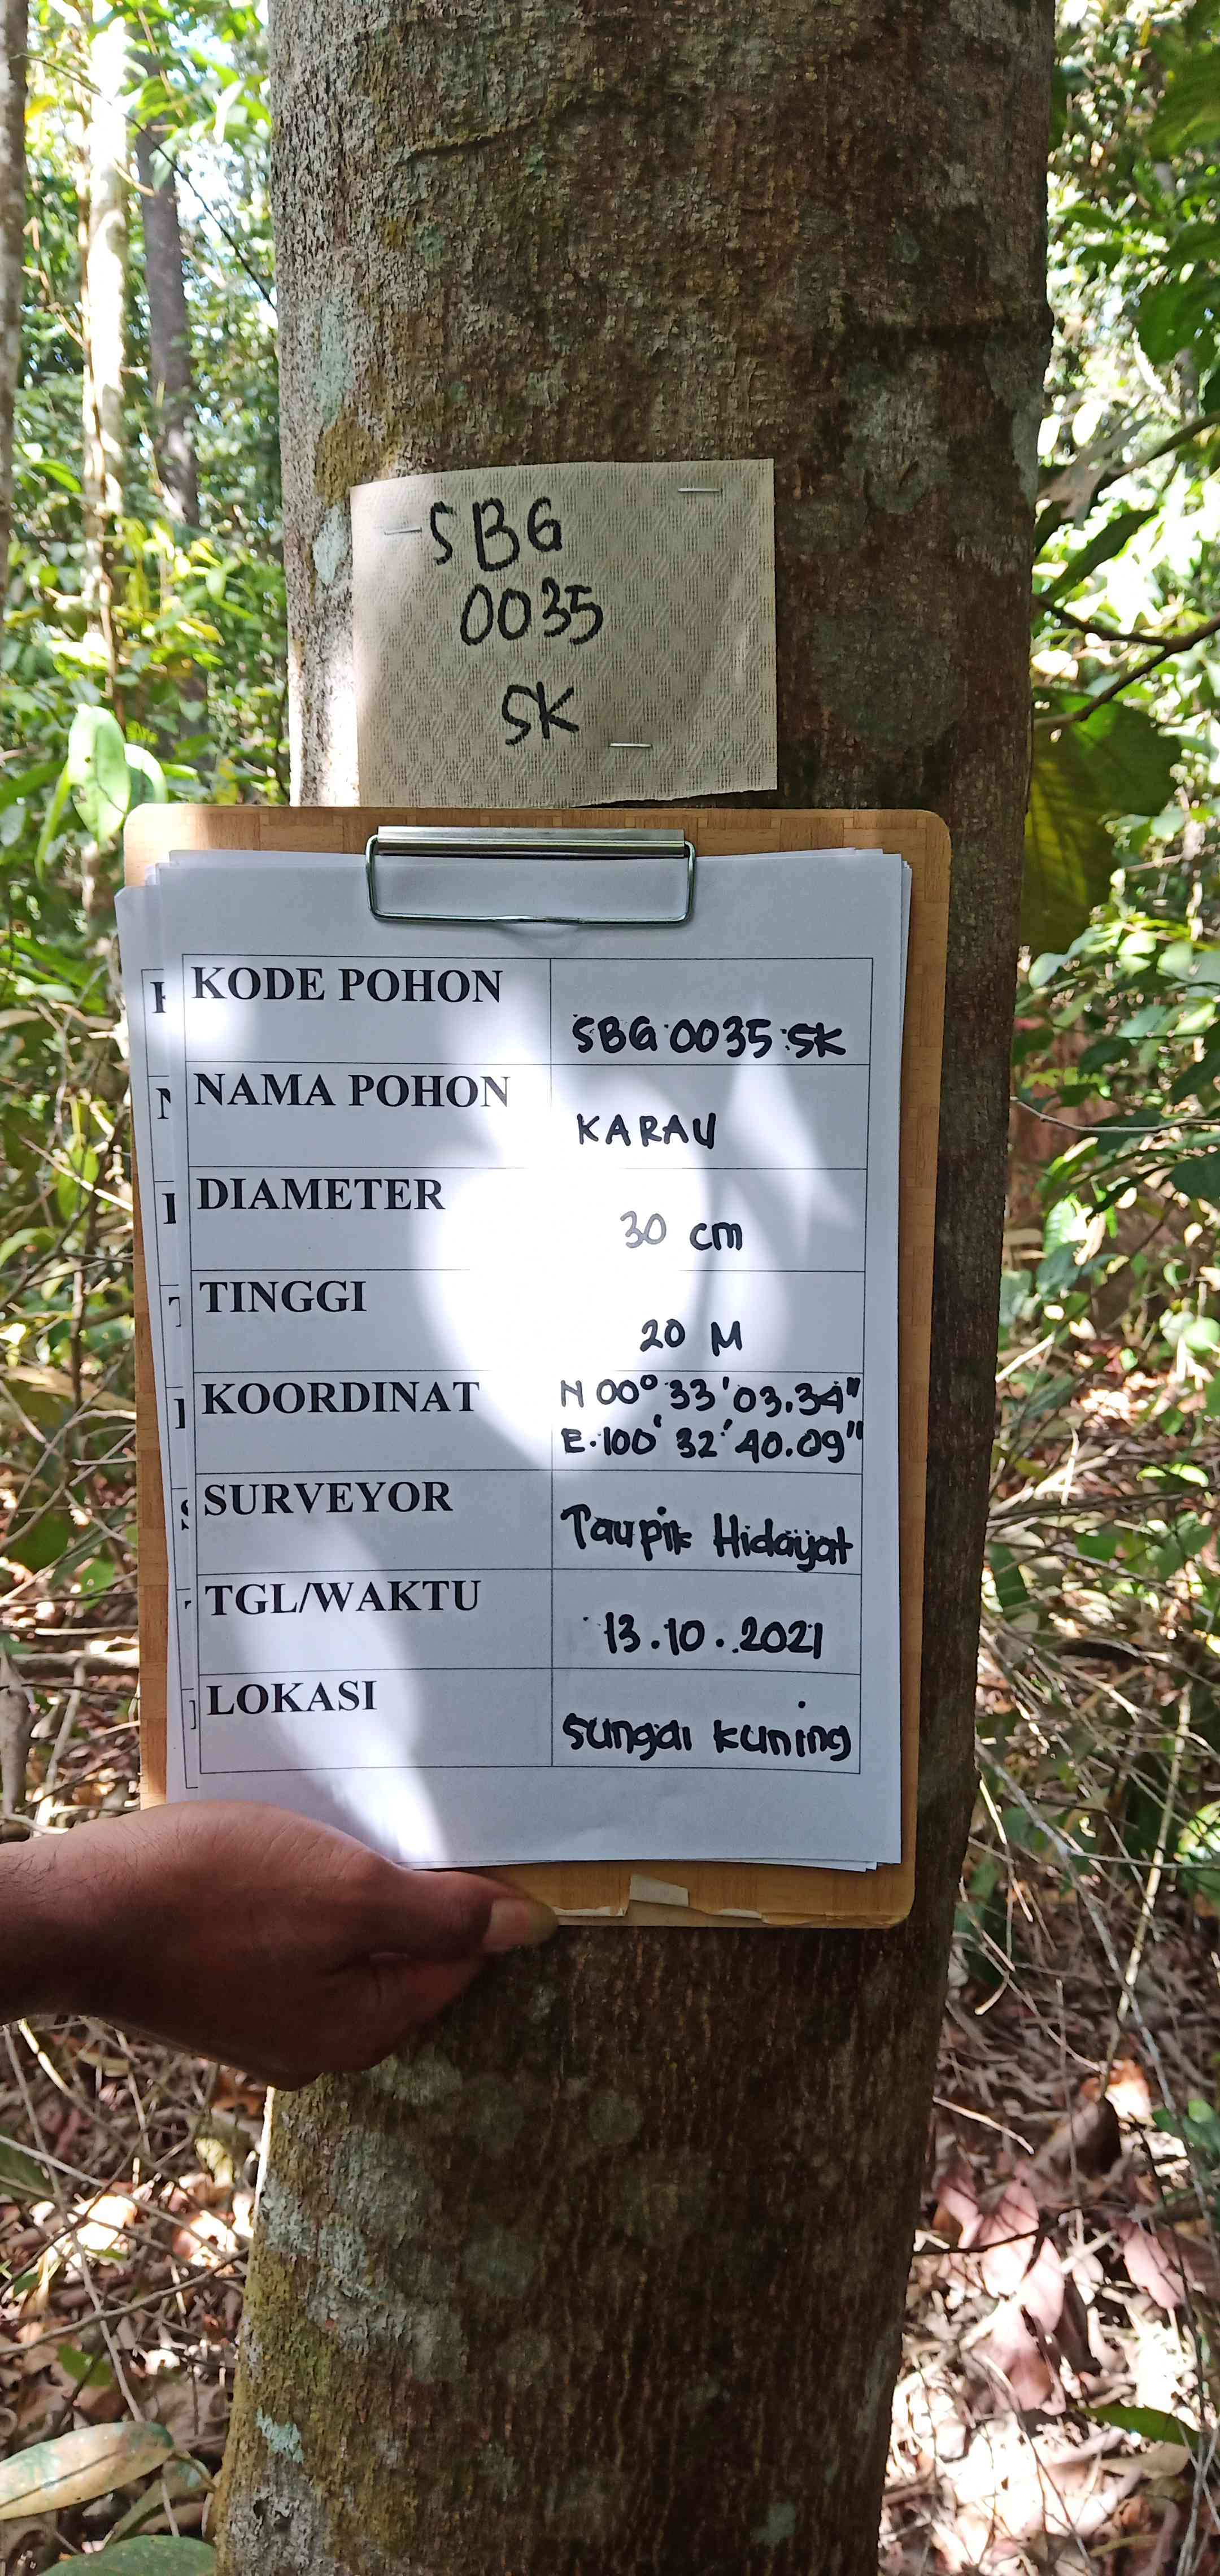 SBG
0035
SK
KODE POHON
SBG 0035 SK
NAMA POHON
KARAU
DIAMETER
30 cm
TINGGI
20 M
KOORDINAT
N 00° 33' 03.34"
E. 100' 32' 40.09"
SURVEYOR
Taupik Hidayat
TGL/WAKTU
13.10.2021
LOKASI
Sungai kuning